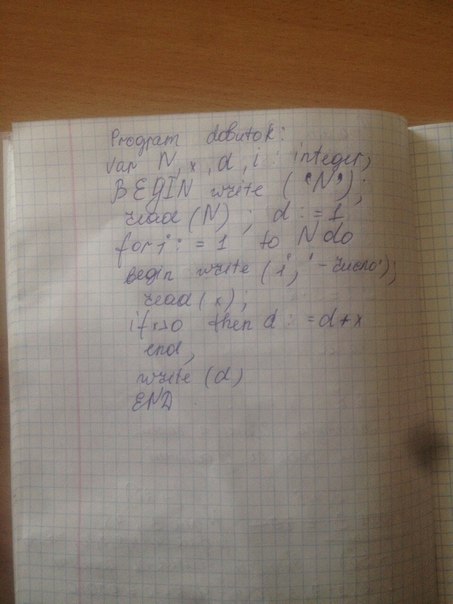 Program dobutok:
var N, x, d, i : integer,
BEGIN write ('N');
read (N) ; d : = 1
for i : = 1 to N do
begin write (i, '- число');
read (x),
if x>0 then d : = d + x
end,
write (d)
END